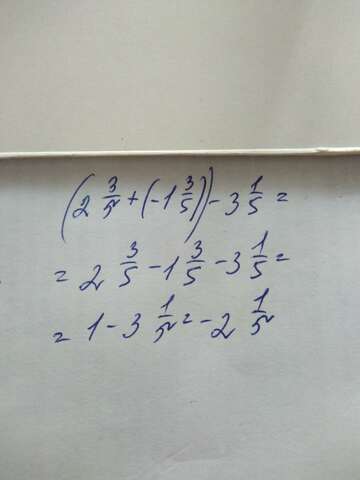 (2 3/5 + (-1 3/5)) - 3 1/5 =
= 2 3/5 - 1 3/5 - 3 1/5 =
= 1 - 3 1/5 = - 2 1/5